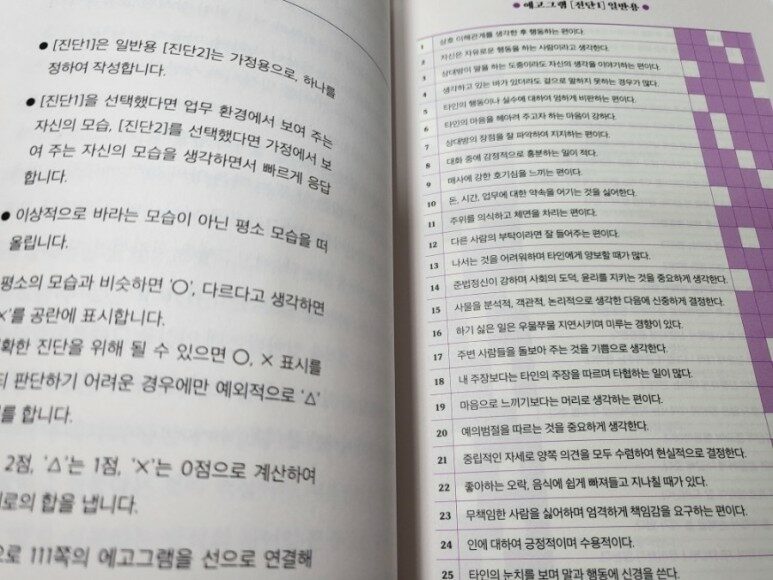 ● [진단1]은 일반용 [진단2]는 가정용으로, 하나를
정하여 작성합니다.
● [진단1]을 선택했다면 업무 환경에서 보여 주는
자신의 모습, [진단2]를 선택했다면 가정에서 보
여 주는 자신의 모습을 생각하면서 빠르게 응답
합니다.
● 이상적으로 바라는 모습이 아닌 평소 모습을 떠
올립니다.
평소의 모습과 비슷하면 'O', 다르다고 생각하면
'×'를 공란에 표시합니다.
확한 진단을 위해 될 수 있으면 O, × 표시를
판단하기 어려운 경우에만 예외적으로 '△'
를 합니다.
2점, '△'는 1점, '×'는 0점으로 계산하여
로의 합을 냅니다.
으로 111쪽의 에고그램을 선으로 연결해
● 에고그램 [진단1] 일반용 ●
1 상호 이해관계를 생각한 후 행동하는 편이다.
2 자신은 자유로운 행동을 하는 사람이라고 생각한다.
3 상대방이 말을 하는 도중이라도 자신의 생각을 이야기하는 편이다.
4 생각하고 있는 바가 있더라도 겉으로 말하지 못하는 경우가 많다.
5 타인의 행동이나 실수에 대하여 엄하게 비판하는 편이다.
6 타인의 마음을 헤아려 주고자 하는 마음이 강하다.
7 상대방의 장점을 잘 파악하여 지지하는 편이다.
8 대화 중에 감정적으로 흥분하는 일이 적다.
9 매사에 강한 호기심을 느끼는 편이다.
10 돈, 시간, 업무에 대한 약속을 어기는 것을 싫어한다.
11 주위를 의식하고 체면을 차리는 편이다.
12 다른 사람의 부탁이라면 잘 들어주는 편이다.
13 나서는 것을 어려워하며 타인에게 양보할 때가 많다.
14 준법정신이 강하며 사회의 도덕, 윤리를 지키는 것을 중요하게 생각한다.
15 사물을 분석적, 객관적, 논리적으로 생각한 다음에 신중하게 결정한다.
16 하기 싫은 일은 우물쭈물 지연시키며 미루는 경향이 있다.
17 주변 사람들을 돌보아 주는 것을 기쁨으로 생각한다.
18 내 주장보다는 타인의 주장을 따르며 타협하는 일이 많다.
19 마음으로 느끼기보다는 머리로 생각하는 편이다.
20 예의범절을 따르는 것을 중요하게 생각한다.
21 중립적인 자세로 양쪽 의견을 모두 수렴하여 현실적으로 결정한다.
22 좋아하는 오락, 음식에 쉽게 빠져들고 지나칠 때가 있다.
23 무책임한 사람을 싫어하며 엄격하게 책임감을 요구하는 편이다.
24 인에 대하여 긍정적이며 수용적이다.
25 타인의 눈치를 보며 말과 행동에 신경을 쓴다.